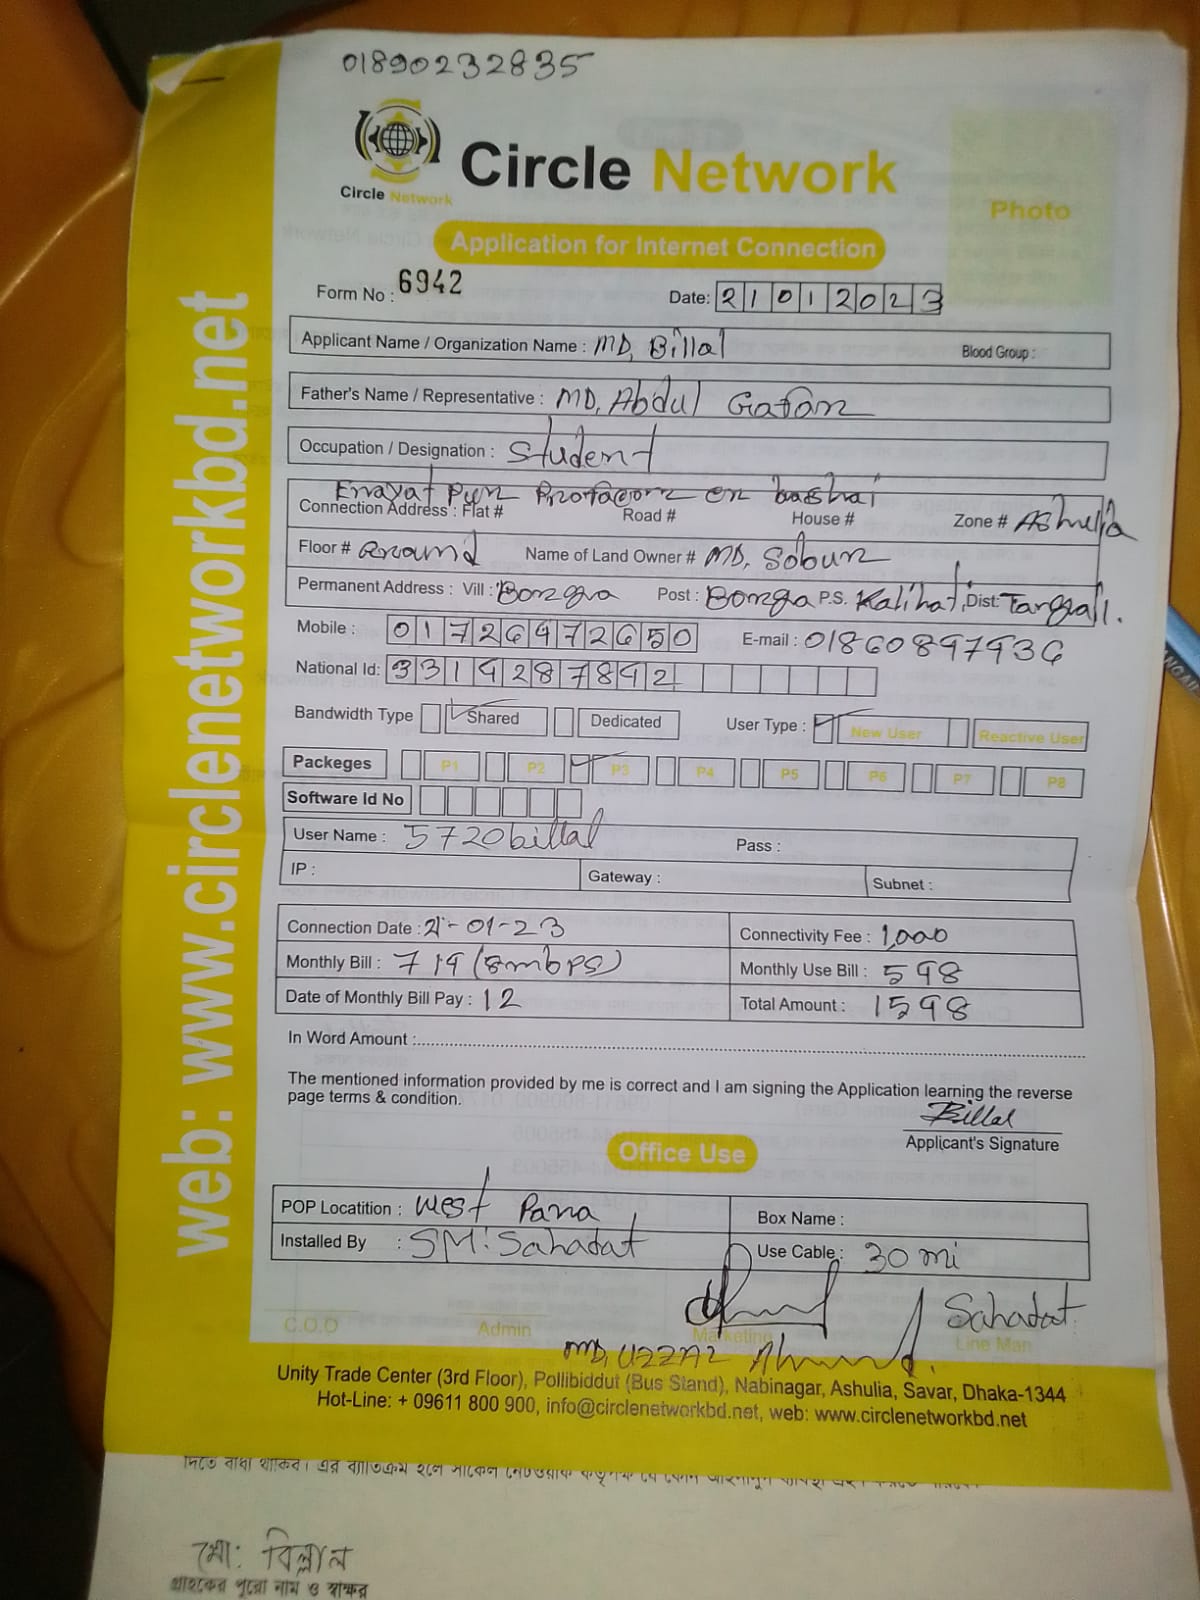 01890232835
Circle Network
Circle Network
Photo
Application for Internet Connection
Form No : 6942
Date: 21012023
Applicant Name / Organization Name : MD, Billal
Blood Group :
Father's Name / Representative : MD, Abdul Gafar
Occupation / Designation : Student
Enayat Pur
Connection Address : Flat # Road # House # Zone # Ashulia
Floor # Ground Name of Land Owner # MD, Sobur
Permanent Address : Vill : Bongra Post : Bongra P.S. Kalihat, Dist: Tangail.
Mobile : 01726972650 E-mail : 01860897936
National Id: 3319287892
Bandwidth Type Shared Dedicated User Type : New User Reactive User
Packeges P1 P2 P3 P4 P5 P6 P7 P8
Software Id No
User Name : 5720billal Pass :
IP : Gateway : Subnet :
Connection Date : 21-01-23 Connectivity Fee : 1,000
Monthly Bill : 719 (8mbPS) Monthly Use Bill : 598
Date of Monthly Bill Pay : 12 Total Amount : 1598
In Word Amount :
The mentioned information provided by me is correct and I am signing the Application learning the reverse
page terms & condition.
Billal
Applicant's Signature
Office Use
POP Locatition : West Para Box Name :
Installed By : SM: Sahadat Use Cable : 30 mi
Sahadat
C.O.O Admin Marketing Line Man
MD, UZZAL Ahmed.
Unity Trade Center (3rd Floor), Pollibiddut (Bus Stand), Nabinagar, Ashulia, Savar, Dhaka-1344
Hot-Line: + 09611 800 900, info@circlenetworkbd.net, web: www.circlenetworkbd.net
web: www.circlenetworkbd.net
মো: বিল্লাল
গ্রাহকের পুরো নাম ও স্বাক্ষর